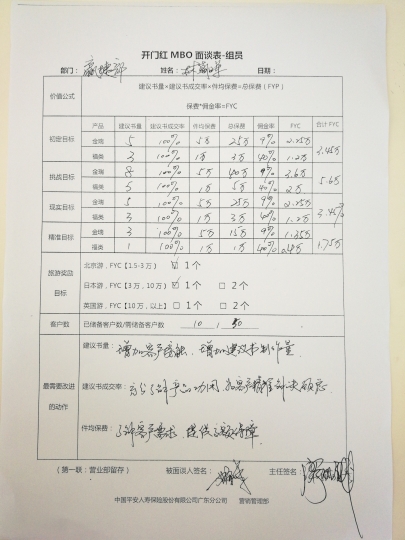 开门红 MBO 面谈表-组员
部门： 姓名： 日期：
价值公式 建议书量×建议书成交率×件均保费=总保费（FYP）
保费*佣金率=FYC
产品 建议书量 建议书成交率 件均保费 总保费 佣金率 FYC 合计 FYC
初定目标 金瑞 5 100% 5万 25万 9% 2.25万 3.45万
福类 3 100% 1万 3万 40% 1.2万
挑战目标 金瑞 8 100% 5万 40万 9% 3.6万 5.6万
福类 5 100% 1万 5万 40% 2万
现实目标 金瑞 5 100% 5万 25万 9% 2.25万 3.45万
福类 3 100% 1万 3万 40% 1.2万
精准目标 金瑞 3 100% 5万 15万 9% 1.35万 1.75万
福类 1 100% 1万 1万 40%
旅游奖励目标 北京游，FYC【1.5-3 万】 ☑ 1个
日本游，FYC【3 万，10 万】 ☑ 1个 □ 2个
英国游，FYC【10 万，以上】 □ 1个 □ 2个
客户数 已储备客户数/需储备客户数 10 / 50
最需要改进的动作
建议书量：
增加客户接触，增加建议书制作量
建议书成交率：
件均保费：
了解客户需求，提供
（第一联：营业部留存） 被面谈人签名： 主任签名：
中国平安人寿保险股份有限公司广东分公司 营销管理部